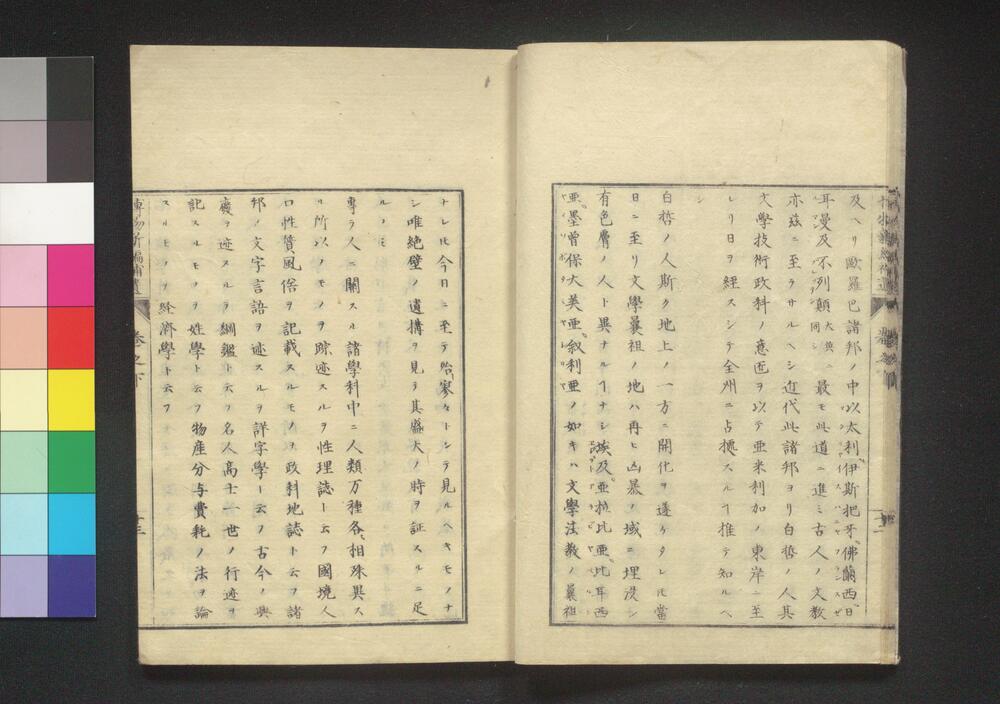 及ヘリ歐羅巴諸邦ノ中以太利伊斯把牙佛蘭西日
耳曼及不列顛大英同シニ最モ此道ニ進ミ古人ノ文教
亦玆ニ至ラサルヘシ近代此諸邦ヨリ白哲ノ人其
文學技術政科ノ意匠ヲ以テ亜米利加ノ東岸ニ至
レリ日ヲ經スシテ全州ニ占據スルヿ推テ知ルヘ
シ
白哲ノ人斯ク地上ノ一方ニ開化ヲ遂ケタレ𪜈當
日ニ至リ文學曩祖ノ地ハ再ヒ凶暴ノ域ニ埋没シ
有色膚ノ人ト異ナルヿナシ埃及亜拉比亜比耳西
亜墨曾保大美亜叙利亜ノ如キハ文學法教ノ曩祖
十二
ナレ𪜈今日ニ至テ殆寥々トシテ見ルヘキモノナ
シ唯絶壁ノ遺搆ヲ見テ其盛大ノ時ヲ証スルニ足
ルノミ
專ラ人ニ關スル諸學科中ニ人類万種各相殊異ス
ル所以ノモノヲ踪迹スルヲ性理誌ト云フ國境人
口性質風俗ヲ記載スルモノヲ政科地誌ト云ヲ諸
邦ノ文字言語ヲ迹スルヲ詳字學ト云フ古今ノ興
癈ヲ迹スルヲ綱鑑ト云フ名人高士一世ノ行迹ヲ
記スルモノヲ姓學ト云フ物産分与費耗ノ法ヲ論
スルモノヲ経濟學ト云フ
博物新編補遺
卷之下
十三